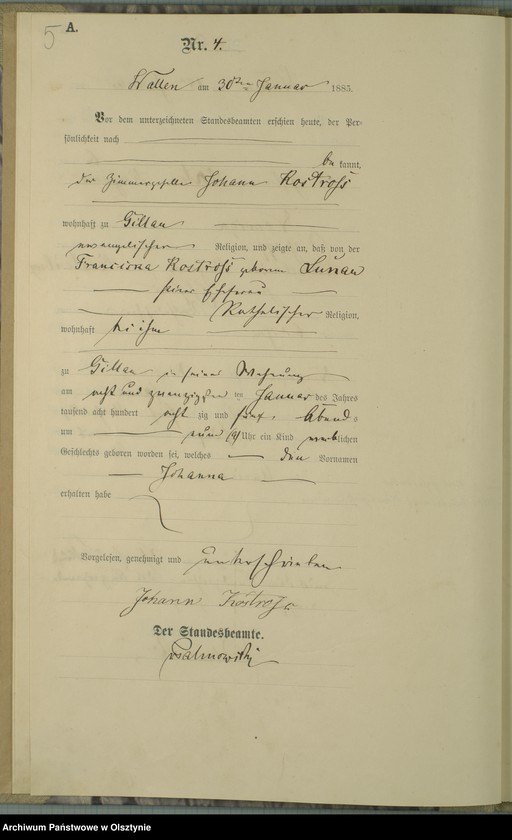 5
A.
Nr. 4.
Wallen am 30ten Januar 1885.
Vor dem unterzeichneten Standesbeamten erschien heute, der Per-
sönlichkeit nach
be kannt,
der Zimmergeselle Johann Kostroß
wohnhaft zu Gillau
evangelischer Religion, und zeigte an, daß von der
Kostroß geborene Lunau
seiner Ehefrau
Katholischer Religion,
wohnhaft bei ihm
zu Gillau in seiner Wohnung
am acht und zwanzigsten ten Januar des Jahres
tausend acht hundert acht zig und fünf, Abends
um neun (9) Uhr ein Kind weiblichen
Geschlechts geboren worden sei, welches den Vornamen
Johanna
erhalten habe
Vorgelesen, genehmigt und unterschrieben
Johann Kostroß
Der Standesbeamte.
Archiwum Państwowe w Olsztynie